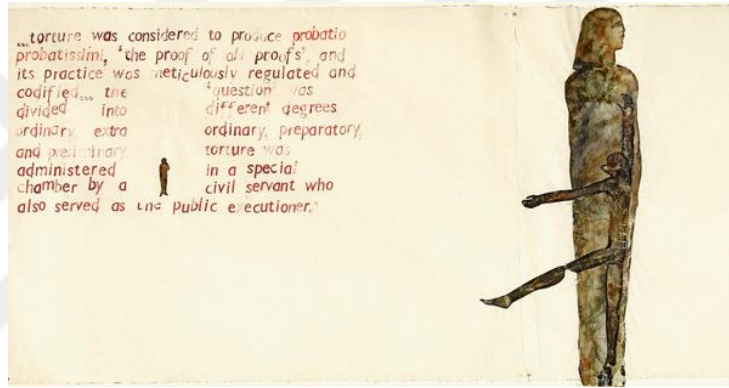 ...torture was considered to produce probatio
probatissimi, 'the proof of all proofs', and
its practice was meticulously regulated and
codified... the 'question' was
divided into different degrees
ordinary, extra ordinary, preparatory,
and preliminary. torture was
administered in a special
chamber by a civil servant who
also served as the public executioner."